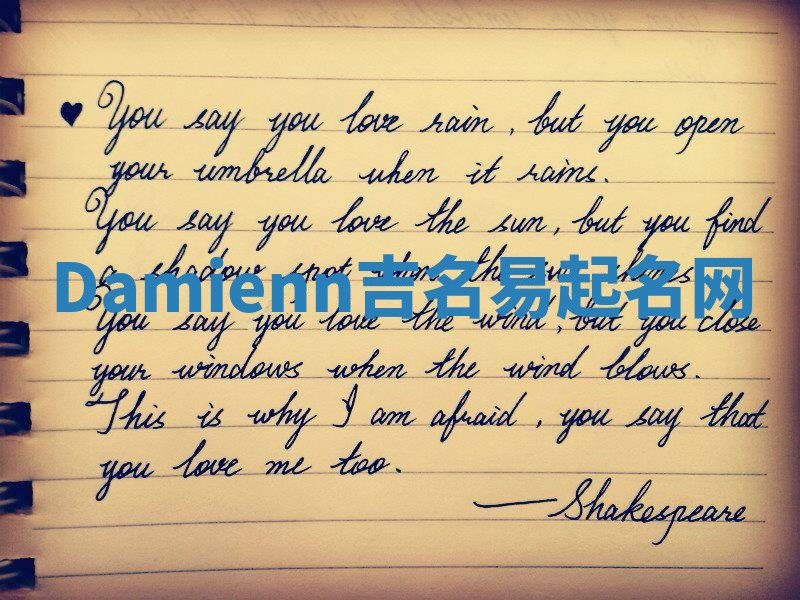 ♥ You say you love rain, but you open
your umbrella when it rains.
You say you love the sun, but you find
a shadow spot when the sun shines
Damienn吉名易起名网
You say you love the wind, but you close
your windows when the wind blows.
This is why I am afraid, you say that
you love me too.
—Shakespeare